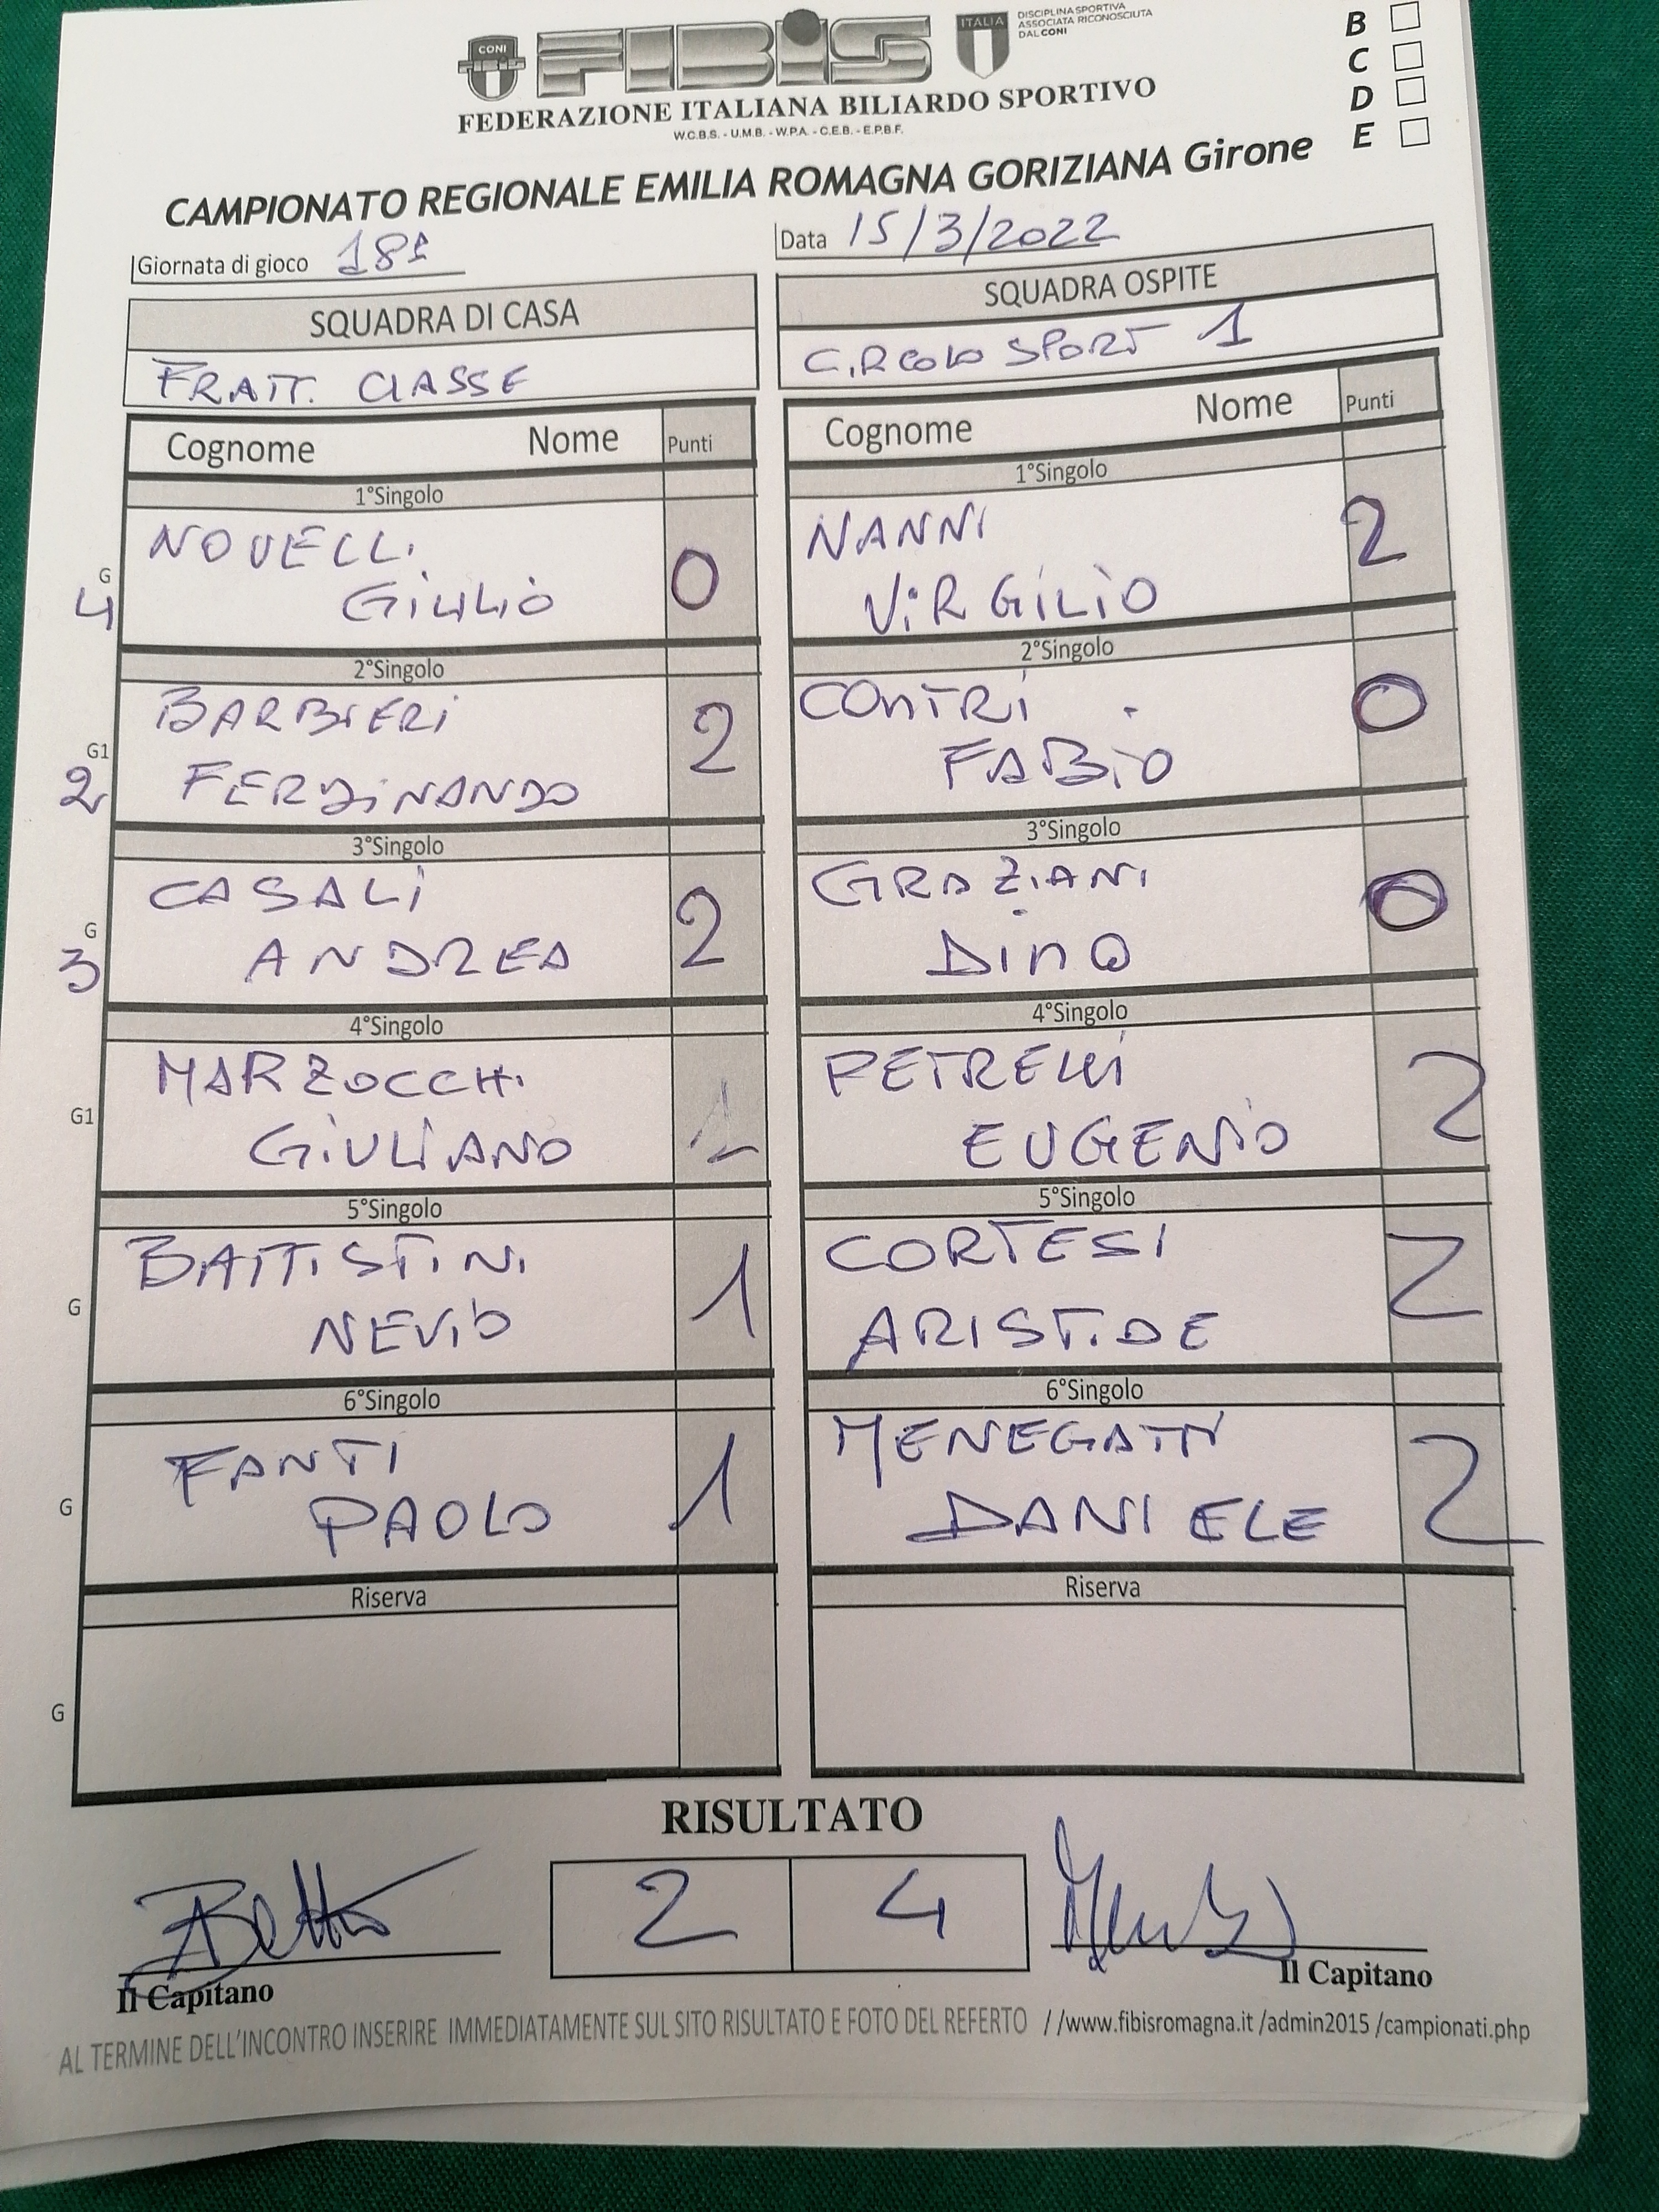 CONI
FIBIS
FIBIS
ITALIA
DISCIPLINA SPORTIVA
ASSOCIATA RICONOSCIUTA
DAL CONI
FEDERAZIONE ITALIANA BILIARDO SPORTIVO
W.C.B.S. - U.M.B. - W.P.A. - C.E.B. - E.P.B.F.
B
C
D
E
CAMPIONATO REGIONALE EMILIA ROMAGNA GORIZIANA Girone
Giornata di gioco 18ª
Data 15/3/2022
SQUADRA DI CASA
FRATT. CLASSE
SQUADRA OSPITE
CIRCOLO SPORT 1
Cognome Nome Punti
1°Singolo
NOVELLI
G
4 GIULIO 0
2°Singolo
BARBIERI
G1
2 FERDINANDO 2
3°Singolo
CASALI
G
3 ANDREA 2
4°Singolo
MARZOCCHI
G1
GIULIANO 1
5°Singolo
BATTISTINI
G
NEVIO 1
6°Singolo
FANTI
G
PAOLO 1
Riserva
G
Cognome Nome Punti
1°Singolo
NANNI
VIRGILIO 2
2°Singolo
CONTRI
FABIO 0
3°Singolo
GRAZIANI
DINO 0
4°Singolo
PETRELLI
EUGENIO 2
5°Singolo
CORTESI
ARISTIDE 2
6°Singolo
MENEGATTI
DANIELE 2
Riserva
RISULTATO
2 4
Il Capitano
Il Capitano
AL TERMINE DELL'INCONTRO INSERIRE IMMEDIATAMENTE SUL SITO RISULTATO E FOTO DEL REFERTO //www.fibisromagna.it /admin2015 /campionati.php